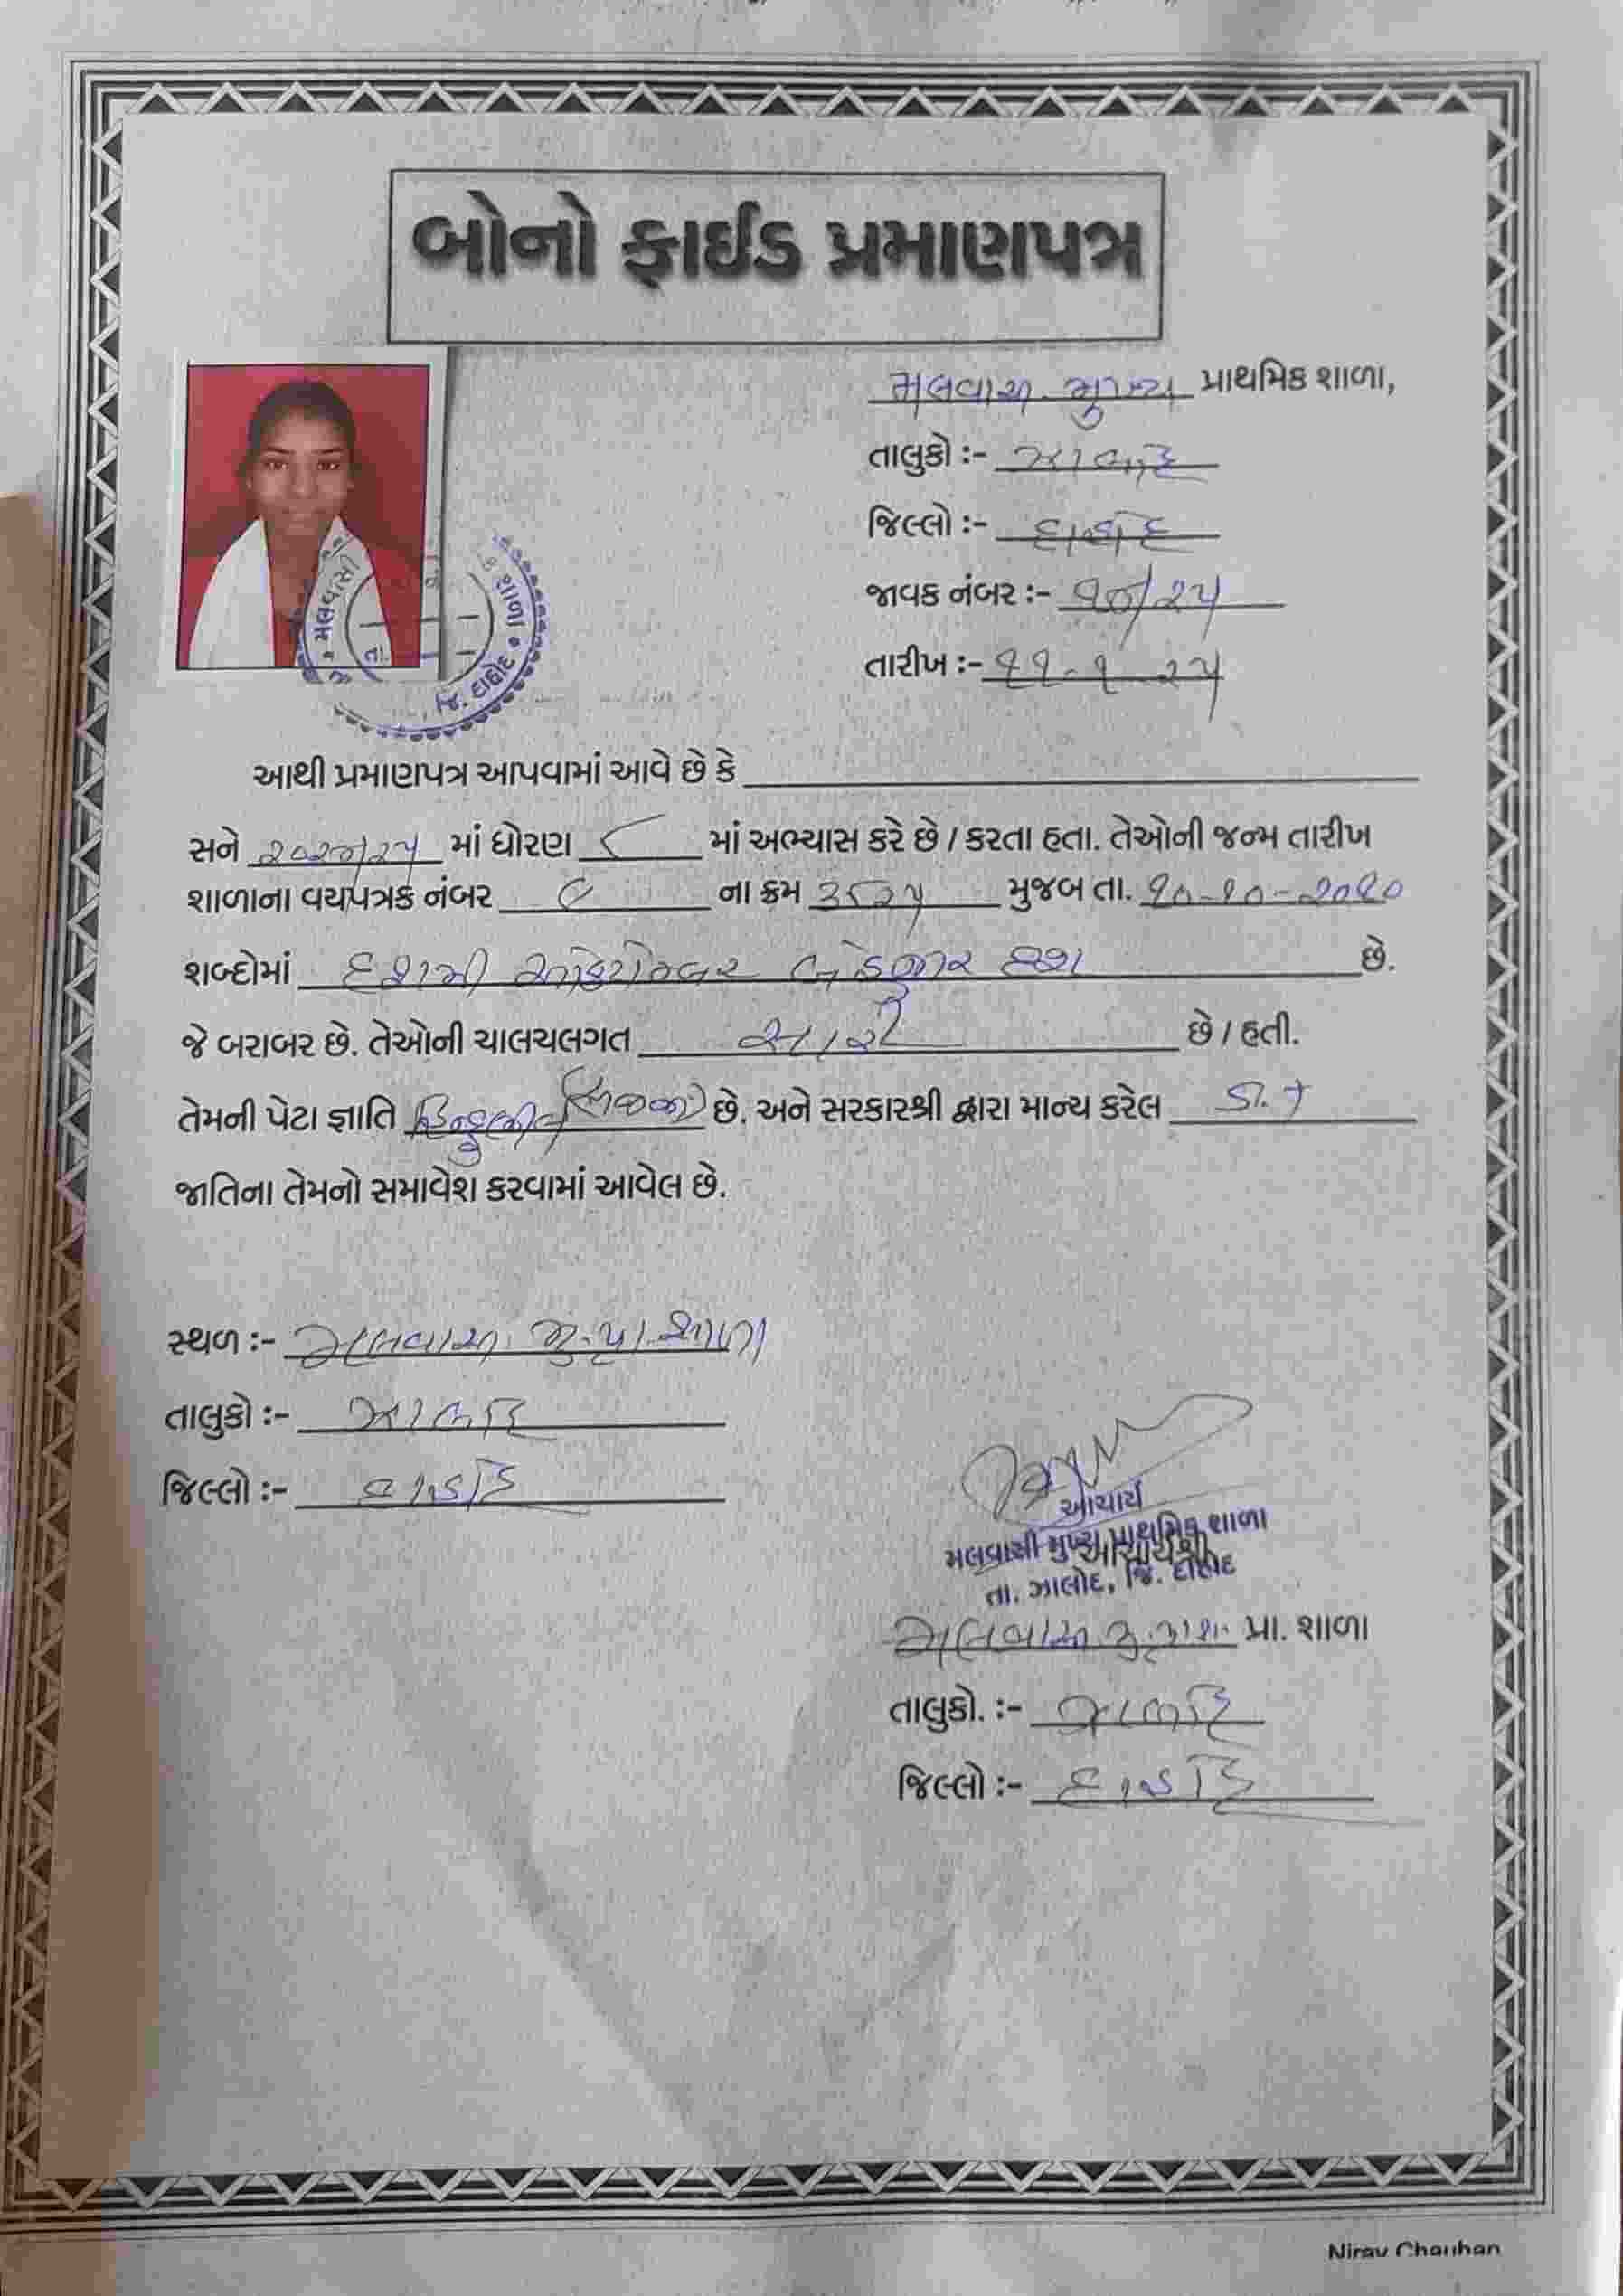 બોનો ફાઈડ પ્રમાણપત્ર
મલવાસી મુખ્ય પ્રાથમિક શાળા,
તાલુકો :- ઝાલોદ
જિલ્લો :- દાહોદ
જાવક નંબર :- ૧૦/૨૫
તારીખ :- ૧૧-૧-૨૫
મલવાસી શાળા
જિ. દાહોદ
આથી પ્રમાણપત્ર આપવામાં આવે છે કે
સને ૨૦૨૪/૨૫ માં ધોરણ ૮ માં અભ્યાસ કરે છે / કરતા હતા. તેઓની જન્મ તારીખ
શાળાના વયપત્રક નંબર ૯ ના ક્રમ ૩૮૨૫ મુજબ તા. ૧૦-૧૦-૨૦૧૦
શબ્દોમાં દશમી ઓકટોમ્બર બે હજાર દશ છે.
જે બરાબર છે. તેઓની ચાલચલગત સારી છે / હતી.
તેમની પેટા જ્ઞાતિ હિન્દુ ભીલ છે. અને સરકારશ્રી દ્વારા માન્ય કરેલ
જાતિના તેમનો સમાવેશ કરવામાં આવેલ છે.
સ્થળ :- મલવાસી મુ. પ્રા. શાળા
તાલુકો :- ઝાલોદ
જિલ્લો :- દાહોદ
આચાર્ય
મલવાસી મુખ્ય પ્રાથમિક શાળા
આચાર્યશ્રી
તા. ઝાલોદ, જિ. દાહોદ
મલવાસી મુ. પ્રા. શા. પ્રા. શાળા
તાલુકો. :- ઝાલોદ
જિલ્લો :- દાહોદ
Nirav Chauhan